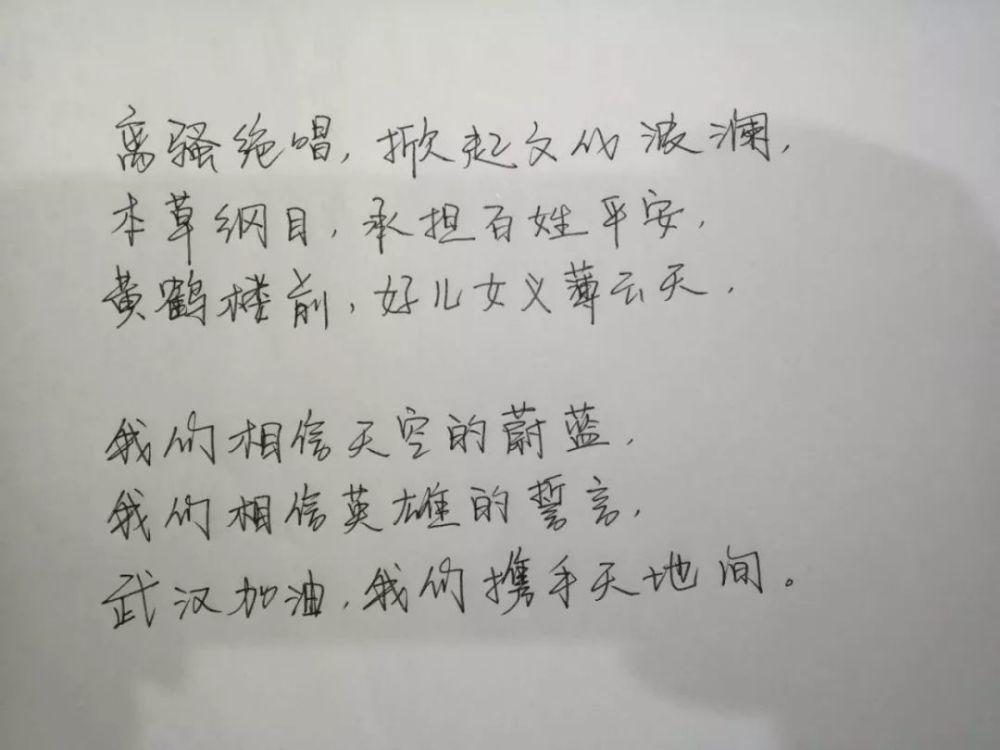 离骚绝唱，掀起文化波澜，
本草纲目，承担百姓平安，
黄鹤楼前，好儿女义薄云天，
我们相信天空的蔚蓝，
我们相信英雄的誓言，
武汉加油，我们携手天地间。